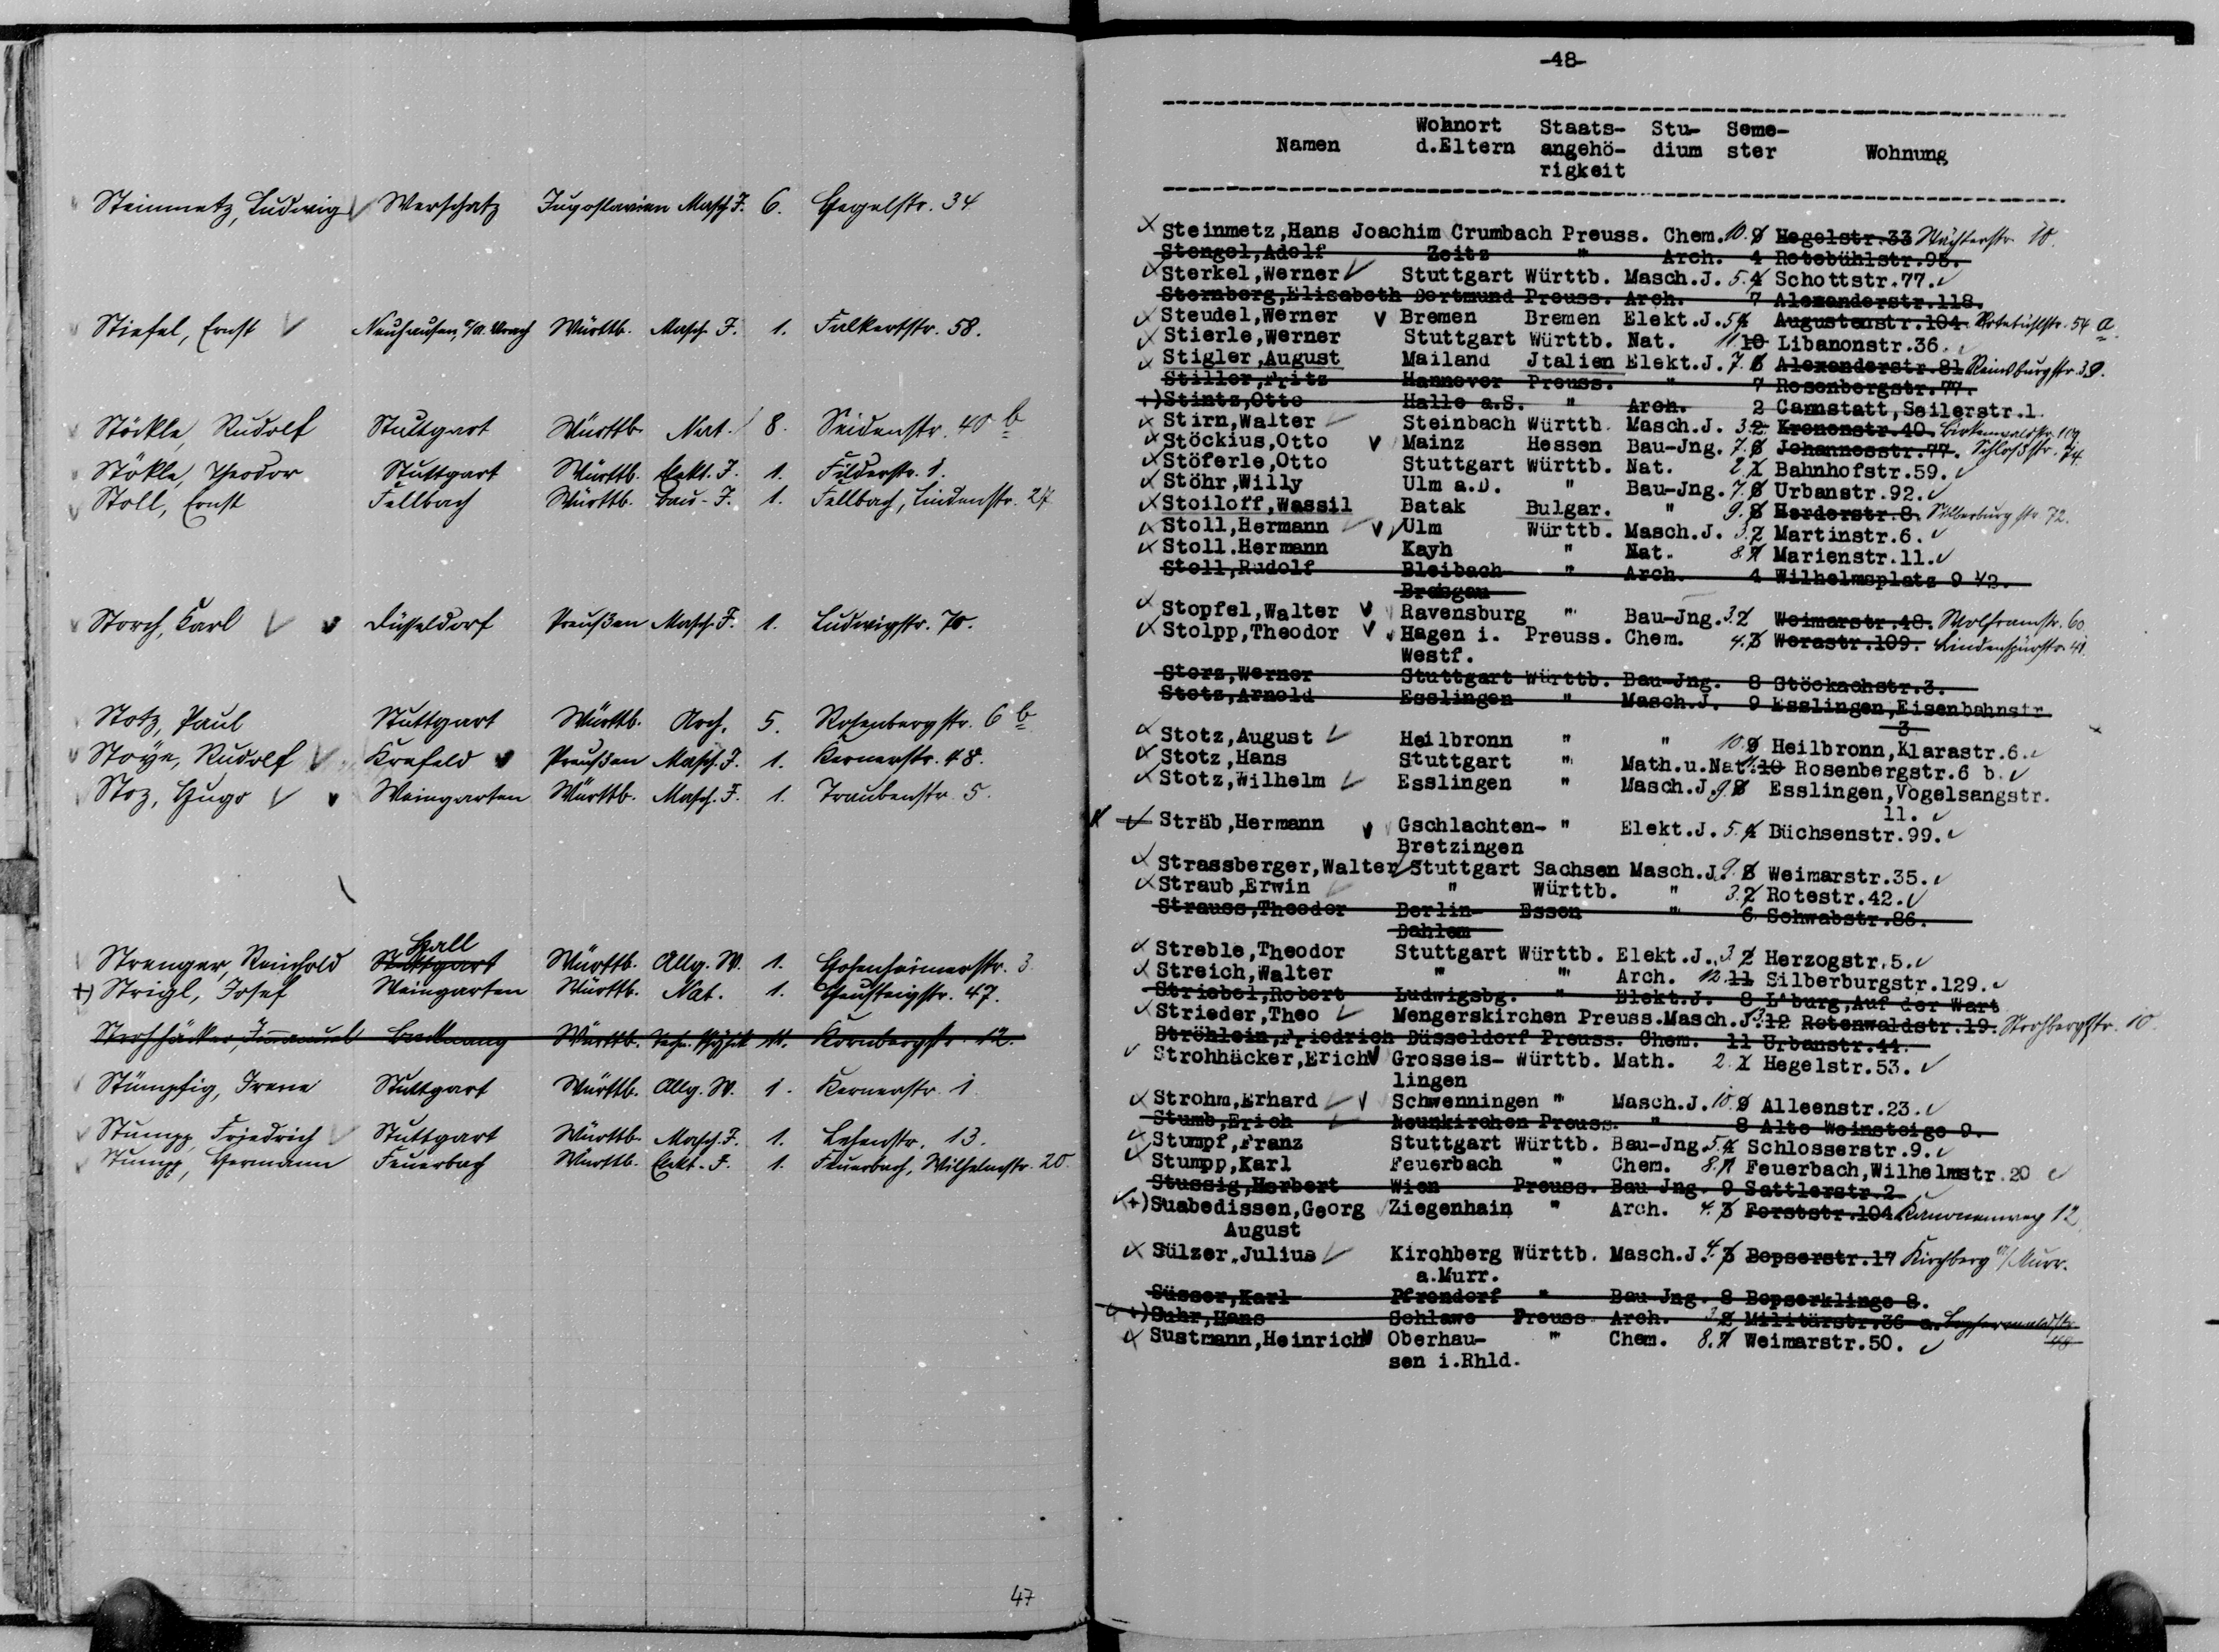 Steinmetz, Ludwig Werschatz Jugoslavien Masch. J. 6. Hegelstr. 34
Stiefel, Ernst Neuhausen, O/A. Urach Württb. Masch. J. 1. Falkertstr. 58.
Stöckle, Rudolf Stuttgart Württb. Nat. 8. Seidenstr. 40 b
Stökle, Theodor Stuttgart Württb. Elekt. J. 1. Filderstr. 1.
Stoll, Ernst Fellbach Württb. Bau-J. 1. Fellbach, Lindenstr. 27
Storch, Karl Düsseldorf Preußen Masch. J. 1. Ludwigstr. 70.
Stotz, Paul Stuttgart Württb. Arch. 5. Rosenbergstr. 6 b
Stoye, Rudolf Krefeld Preußen Masch. J. 1. Kernerstr. 48.
Stoz, Hugo Weingarten Württb. Masch. J. 1. Traubenstr. 5.
Hall
Strenger, Reinhold Stuttgart Württb. Allg. W. 1. Hohenheimerstr. 3
+) Strigl, Josef Weingarten Württb. Nat. 1. 47.
Strohhäcker, Immanuel Backnang Württb. Techn. Physik 11. Kornbergstr. 12.
Stümpfig, Irene Stuttgart Württb. Allg. W. 1. Kernerstr. 1
Stumpp, Friedrich Stuttgart Württb. Masch. J. 1. Lehenstr. 13.
Stumpp, Hermann Feuerbach Württb. Elekt. J. 1. Feuerbach, Wilhelmstr. 20.
47
-48-
Namen Wohnort d.Eltern Staats-angehö-rigkeit Stu-dium Seme-ster Wohnung
Steinmetz,Hans Joachim Crumbach Preuss. Chem. 10. 9 Hegelstr.33 Wächterstr. 10.
Stengel,Adolf Zeitz " Arch. 4 Rotebühlstr.95.
Sterkel,Werner Stuttgart Württb. Masch.J. 5. 4 Schottstr.77.
Sternberg,Elisabeth Dortmund Preuss. Arch. 7 Alexanderstr.118.
Steudel,Werner Bremen Bremen Elekt.J. 5 4 Augustenstr.104. Rotebühlstr. 54 a.
Stierle,Werner Stuttgart Württb. Nat. 11. 10 Libanonstr.36.
Stigler,August Mailand Jtalien Elekt.J. 7. 6 Alexanderstr.81 Reinsburgstr. 39.
Stiller,Fritz Hannover Preuss. " 7 Rosenbergstr.77.
+)Stintz,Otto Halle a.S. " Arch. 2 Cannstatt,Seilerstr.1.
Stirn,Walter Steinbach Württb. Masch.J. 3. 2. Kronenstr.40. Birkenwaldstr. 109
Stöckius,Otto Mainz Hessen Bau-Jng. 7. 6 Johannesstr.77. Schloßstr. 74.
Stöferle,Otto Stuttgart Württb. Nat. 2 1 Bahnhofstr.59.
Stöhr,Willy Ulm a.D. " Bau-Jng. 7. 6 Urbanstr.92.
Stoiloff,Wassil Batak Bulgar. " 9. 8 Herderstr.8. Silberburgstr. 72.
Stoll,Hermann Ulm Württb. Masch.J. 3. 2 Martinstr.6.
Stoll.Hermann Kayh " Nat. 8. 7 Marienstr.11.
Stoll,Rudolf Bleibach " Arch. 4 Wilhelmsplatz 9 1/2.
Breisgau
Stopfel,Walter Ravensburg " Bau-Jng. 3. 2 Weimarstr.48. Wolframstr. 60
Stolpp,Theodor Hagen i. Preuss. Chem. 4. 3 Werastr.109. Lindenspürstr. 41.
Westf.
Storz,Werner Stuttgart Württb. Bau-Jng. 8 Stöckachstr.3.
Stotz,Arnold Esslingen " Masch.J. 9 Esslingen,Eisenbahnstr
3
Stotz,August Heilbronn " " 10. 9 Heilbronn,Klarastr.6.
Stotz,Hans Stuttgart " Math.u.Nat. 11. 10 Rosenbergstr.6 b.
Stotz,Wilhelm Esslingen " Masch.J. 9. 8 Esslingen,Vogelsangstr.
11.
Sträb,Hermann Gschlachten- " Elekt.J. 5. 4 Büchsenstr.99.
Bretzingen
Strassberger,Walter Stuttgart Sachsen Masch.J. 9. 8 Weimarstr.35.
Straub,Erwin " Württb. " 3. 2 Rotestr.42.
Strauss,Theodor Berlin- Essen " 6 Schwabstr.86.
Dahlem
Streble,Theodor Stuttgart Württb. Elekt.J. 3 2 Herzogstr.5.
Streich,Walter " " Arch. 12. 11 Silberburgstr.129.
Striebel,Robert Ludwigsbg. " Elekt.J. 8 L'burg,Auf der Wart
Strieder,Theo Mengerskirchen Preuss.Masch.J. 13. 12 Rotenwaldstr.19. Strohbergstr. 10.
Ströhlein,Friedrich Düsseldorf Preuss. Chem. 11 Urbanstr.44.
Strohhäcker,Erich Grosseis- Württb. Math. 2. 1 Hegelstr.53.
lingen
Strohm,Erhard Schwenningen " Masch.J. 10. 9 Alleenstr.23.
Stumb,Erich Neunkirchen Preuss. " 8 Alte Weinsteige 9.
Stumpf,Franz Stuttgart Württb. Bau-Jng. 5. 4 Schlosserstr.9.
Stumpp,Karl Feuerbach " Chem. 8. 7 Feuerbach,Wilhelmstr.20
Stussig,Herbert Wien Preuss. Bau-Jng. 9 Sattlerstr.2
+)Suabedissen,Georg Ziegenhain " Arch. 4. 3 Forststr.104 Kanonenweg 12
August
Sülzer,Julius Kirchberg Württb. Masch.J. 4. 3 Bopserstr.17 Kirchberg a/Murr.
a.Murr.
Süsser,Karl Pfrondorf " Bau-Jng. 8 Bopserklinge 8.
+)Suhr,Hans Schlawe Preuss Arch. 3. 2 Militärstr.36 a. Hopserwaldstr. 40
Sustmann,Heinrich Oberhau- " Chem. 8. 7 Weimarstr.50.
sen i.Rhld.